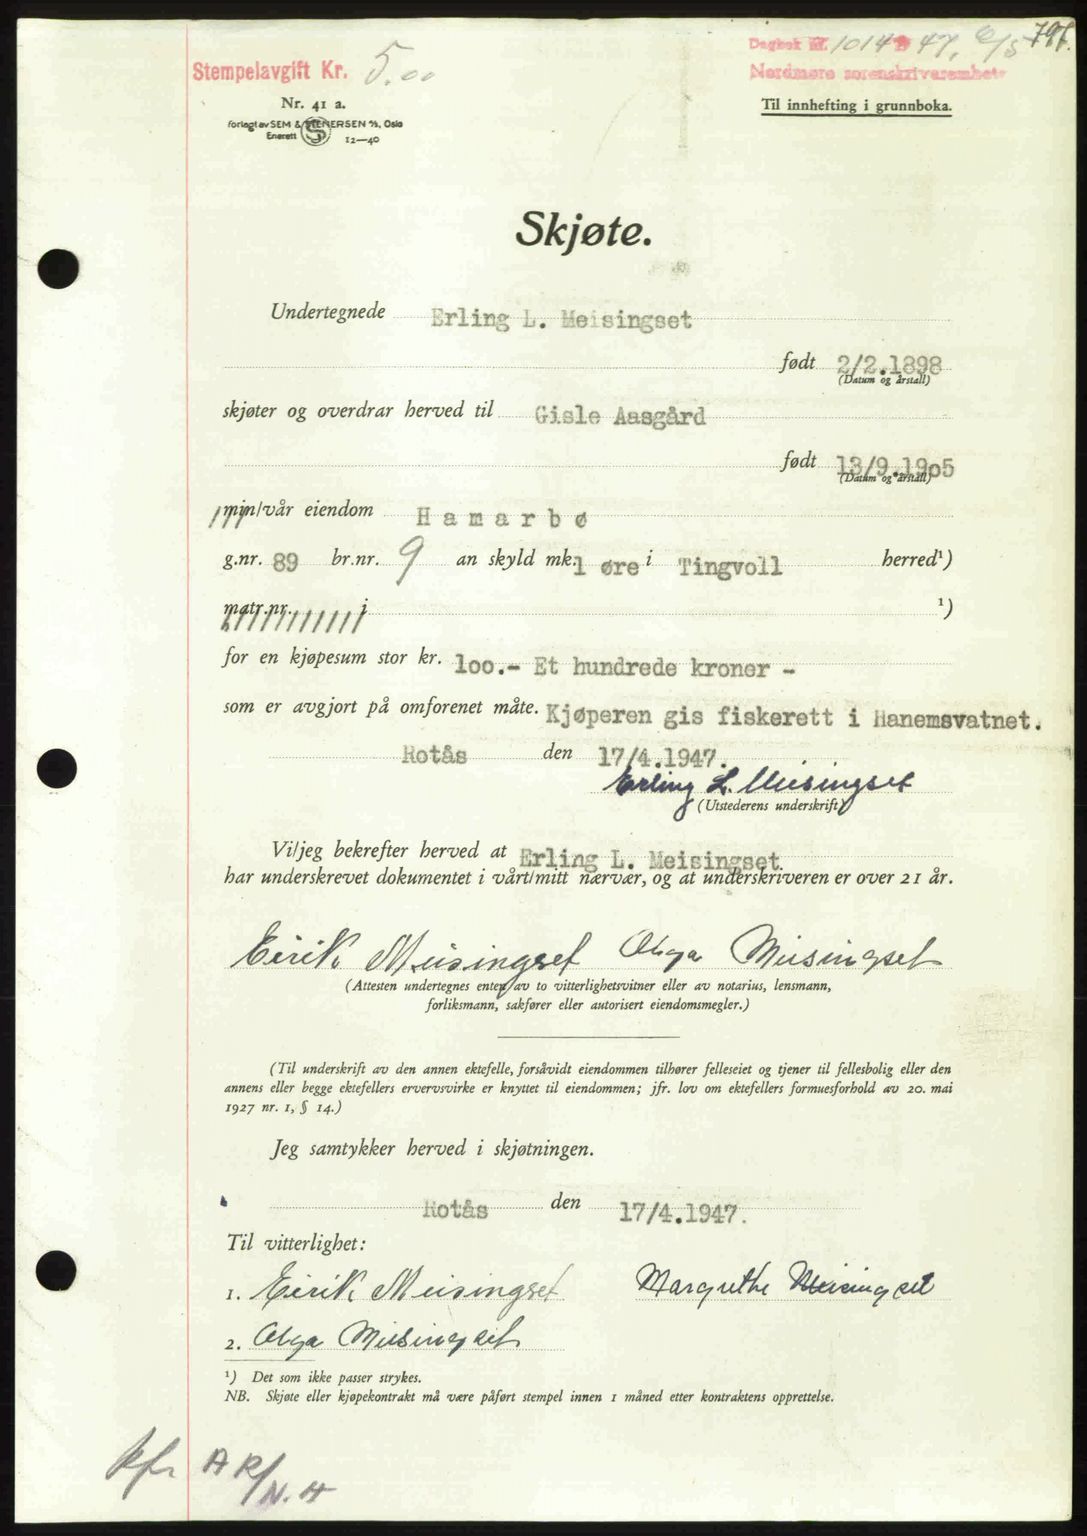 Stempelavgift Kr. 5.00
Dagbok nr. 1014 47, 6/5 797.
Nordmøre sorenskriverembete
Nr. 41 a.
Forlagt av SEM & STENERSEN A/S, Oslo
Enerett 12—40
Til innhefting i grunnboka.
Skjøte.
Undertegnede Erling L. Meisingset
født 2/2.1898
(Datum og årstall)
skjøter og overdrar herved til Gisle Aasgård
født 13/9.1905
(Datum og årstall)
min/vår eiendom Hamarbø
g.nr. 89 br.nr. 9 an skyld mk. 1 øre i Tingvoll herred¹)
matr.nr. i ¹)
for en kjøpesum stor kr. 100.- Et hundrede kroner -
som er avgjort på omforenet måte. Kjøperen gis fiskerett i Hanemsvatnet.
Rotås den 17/4.1947.
Erling L. Meisingset
(Utstederens underskrift)
Vi/jeg bekrefter herved at Erling L. Meisingset
har underskrevet dokumentet i vårt/mitt nærvær, og at underskriveren er over 21 år.
Eirik Meisingset Olga Meisingset
(Attesten undertegnes enten av to vitterlighetsvitner eller av notarius, lensmann,
forliksmann, sakfører eller autorisert eiendomsmegler.)
(Til underskrift av den annen ektefelle, forsåvidt eiendommen tilhører felleseiet og tjener til fellesbolig eller den
annens eller begge ektefellers ervervsvirke er knyttet til eiendommen; jfr. lov om ektefellers formuesforhold av 20. mai
1927 nr. 1, § 14.)
Jeg samtykker herved i skjøtningen.
Rotås den 17/4.1947.
Til vitterlighet:
1. Eirik Meisingset Margrethe Meisingset
2. Olga Meisingset
¹) Det som ikke passer strykes.
NB. Skjøte eller kjøpekontrakt må være påført stempel innen 1 måned etter kontraktens opprettelse.
AR/N.H